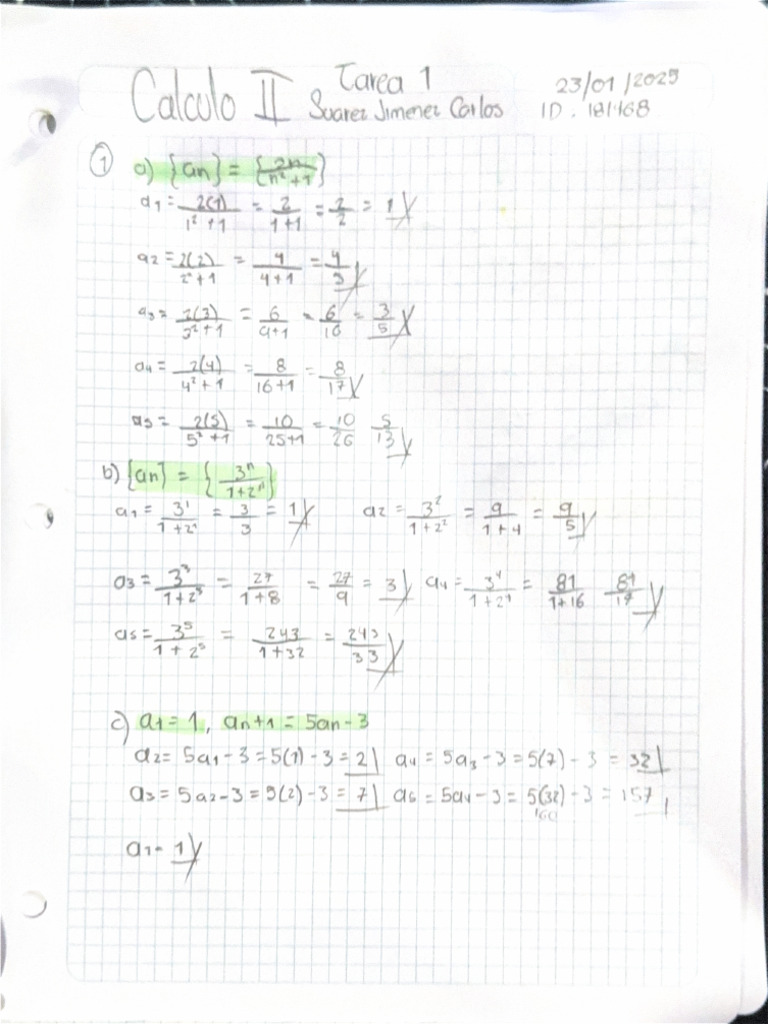 Calculo II Tarea 1 23/01/2025
Suarez Jimenez Carlos ID. 181168
① a) {an} = {2n/(n²+1)}
a1 = 2(1)/(1²+1) = 2/(1+1) = 2/2 = 1
a2 = 2(2)/(2²+1) = 4/(4+1) = 4/5
a3 = 2(3)/(3²+1) = 6/(9+1) = 6/10 = 3/5
a4 = 2(4)/(4²+1) = 8/(16+1) = 8/17
a5 = 2(5)/(5²+1) = 10/(25+1) = 10/26 5/13
b) {an} = {3ⁿ/(1+2ⁿ)}
a1 = 3¹/(1+2¹) = 3/3 = 1 a2 = 3²/(1+2²) = 9/(1+4) = 9/5
a3 = 3³/(1+2³) = 27/(1+8) = 27/9 = 3 a4 = 3⁴/(1+2⁴) = 81/(1+16) 81/17
a5 = 3⁵/(1+2⁵) = 243/(1+32) = 243/33
c) a1 = 1, an+1 = 5an - 3
a2 = 5a1 - 3 = 5(1) - 3 = 2 a4 = 5a3 - 3 = 5(7) - 3 = 32
a3 = 5a2 - 3 = 5(2) - 3 = 7 a5 = 5a4 - 3 = 5(32) - 3 = 157
160
a1 = 1